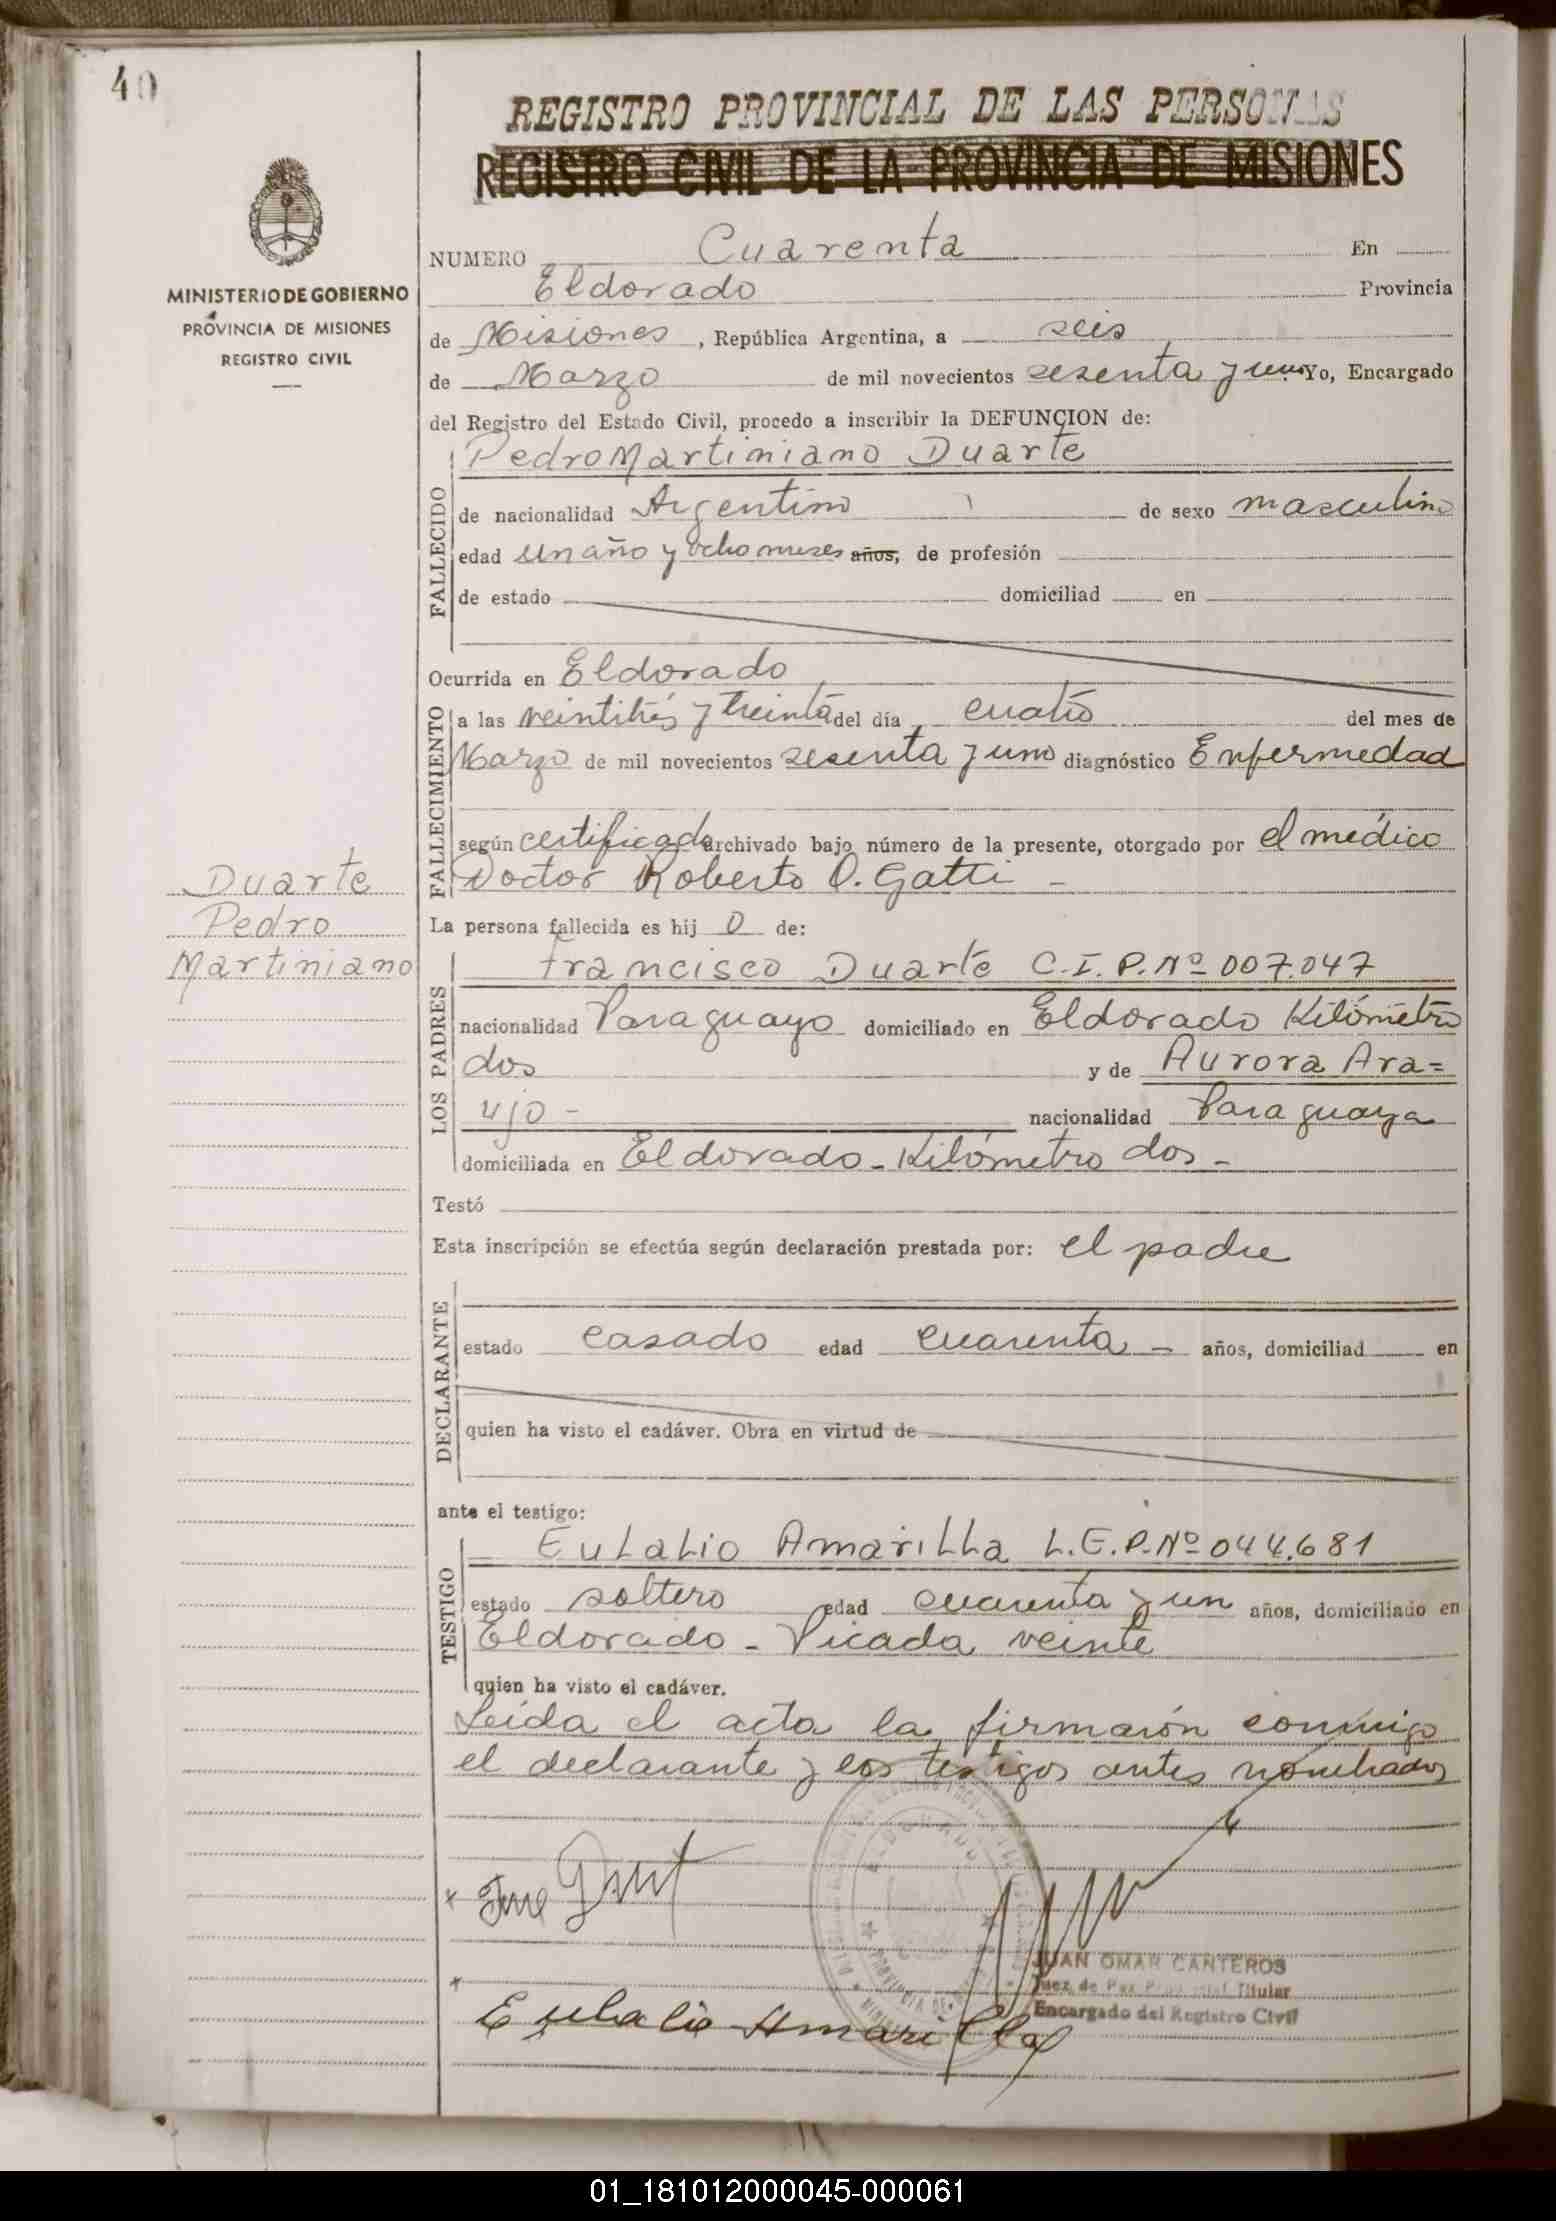 40
REGISTRO PROVINCIAL DE LAS PERSONAS
REGISTRO CIVIL DE LA PROVINCIA DE MISIONES
MINISTERIO DE GOBIERNO
PROVINCIA DE MISIONES
REGISTRO CIVIL
NUMERO Cuarenta En
Eldorado Provincia
de Misiones, República Argentina, a seis
de Marzo de mil novecientos sesenta y uno Yo, Encargado
del Registro del Estado Civil, procedo a inscribir la DEFUNCION de:
Pedro Martiniano Duarte
FALLECIDO
de nacionalidad Argentino de sexo masculino
edad un año y ocho meses años, de profesión
de estado domiciliad en
Ocurrida en Eldorado
FALLECIMIENTO
a las veintitrés y treinta del día cuatro del mes de
Marzo de mil novecientos sesenta y uno diagnóstico Enfermedad
según certificado archivado bajo número de la presente, otorgado por el médico
Doctor Roberto O. Gatti -
Duarte
Pedro
Martiniano
La persona fallecida es hij o de:
LOS PADRES
Francisco Duarte C.I.P.Nº 007.047
nacionalidad Paraguayo domiciliado en Eldorado Kilómetro
dos y de Aurora Ara=
ujo - nacionalidad Paraguaya
domiciliada en Eldorado - Kilómetro dos -
Testó
Esta inscripción se efectúa según declaración prestada por: el padre
DECLARANTE
estado casado edad cuarenta - años, domiciliad en
quien ha visto el cadáver. Obra en virtud de
ante el testigo:
TESTIGO
Eulalio Amarilla L.E.P.Nº 044.681
estado soltero edad cuarenta y un años, domiciliado en
Eldorado - Picada veinte
quien ha visto el cadáver.
Leída el acta la firmarón conmigo
el declarante y los testigos antes nombrados
JUAN OMAR CANTEROS
Juez de Paz Provincial Titular
Encargado del Registro Civil
Eulalio Amarilla
01_181012000045-000061